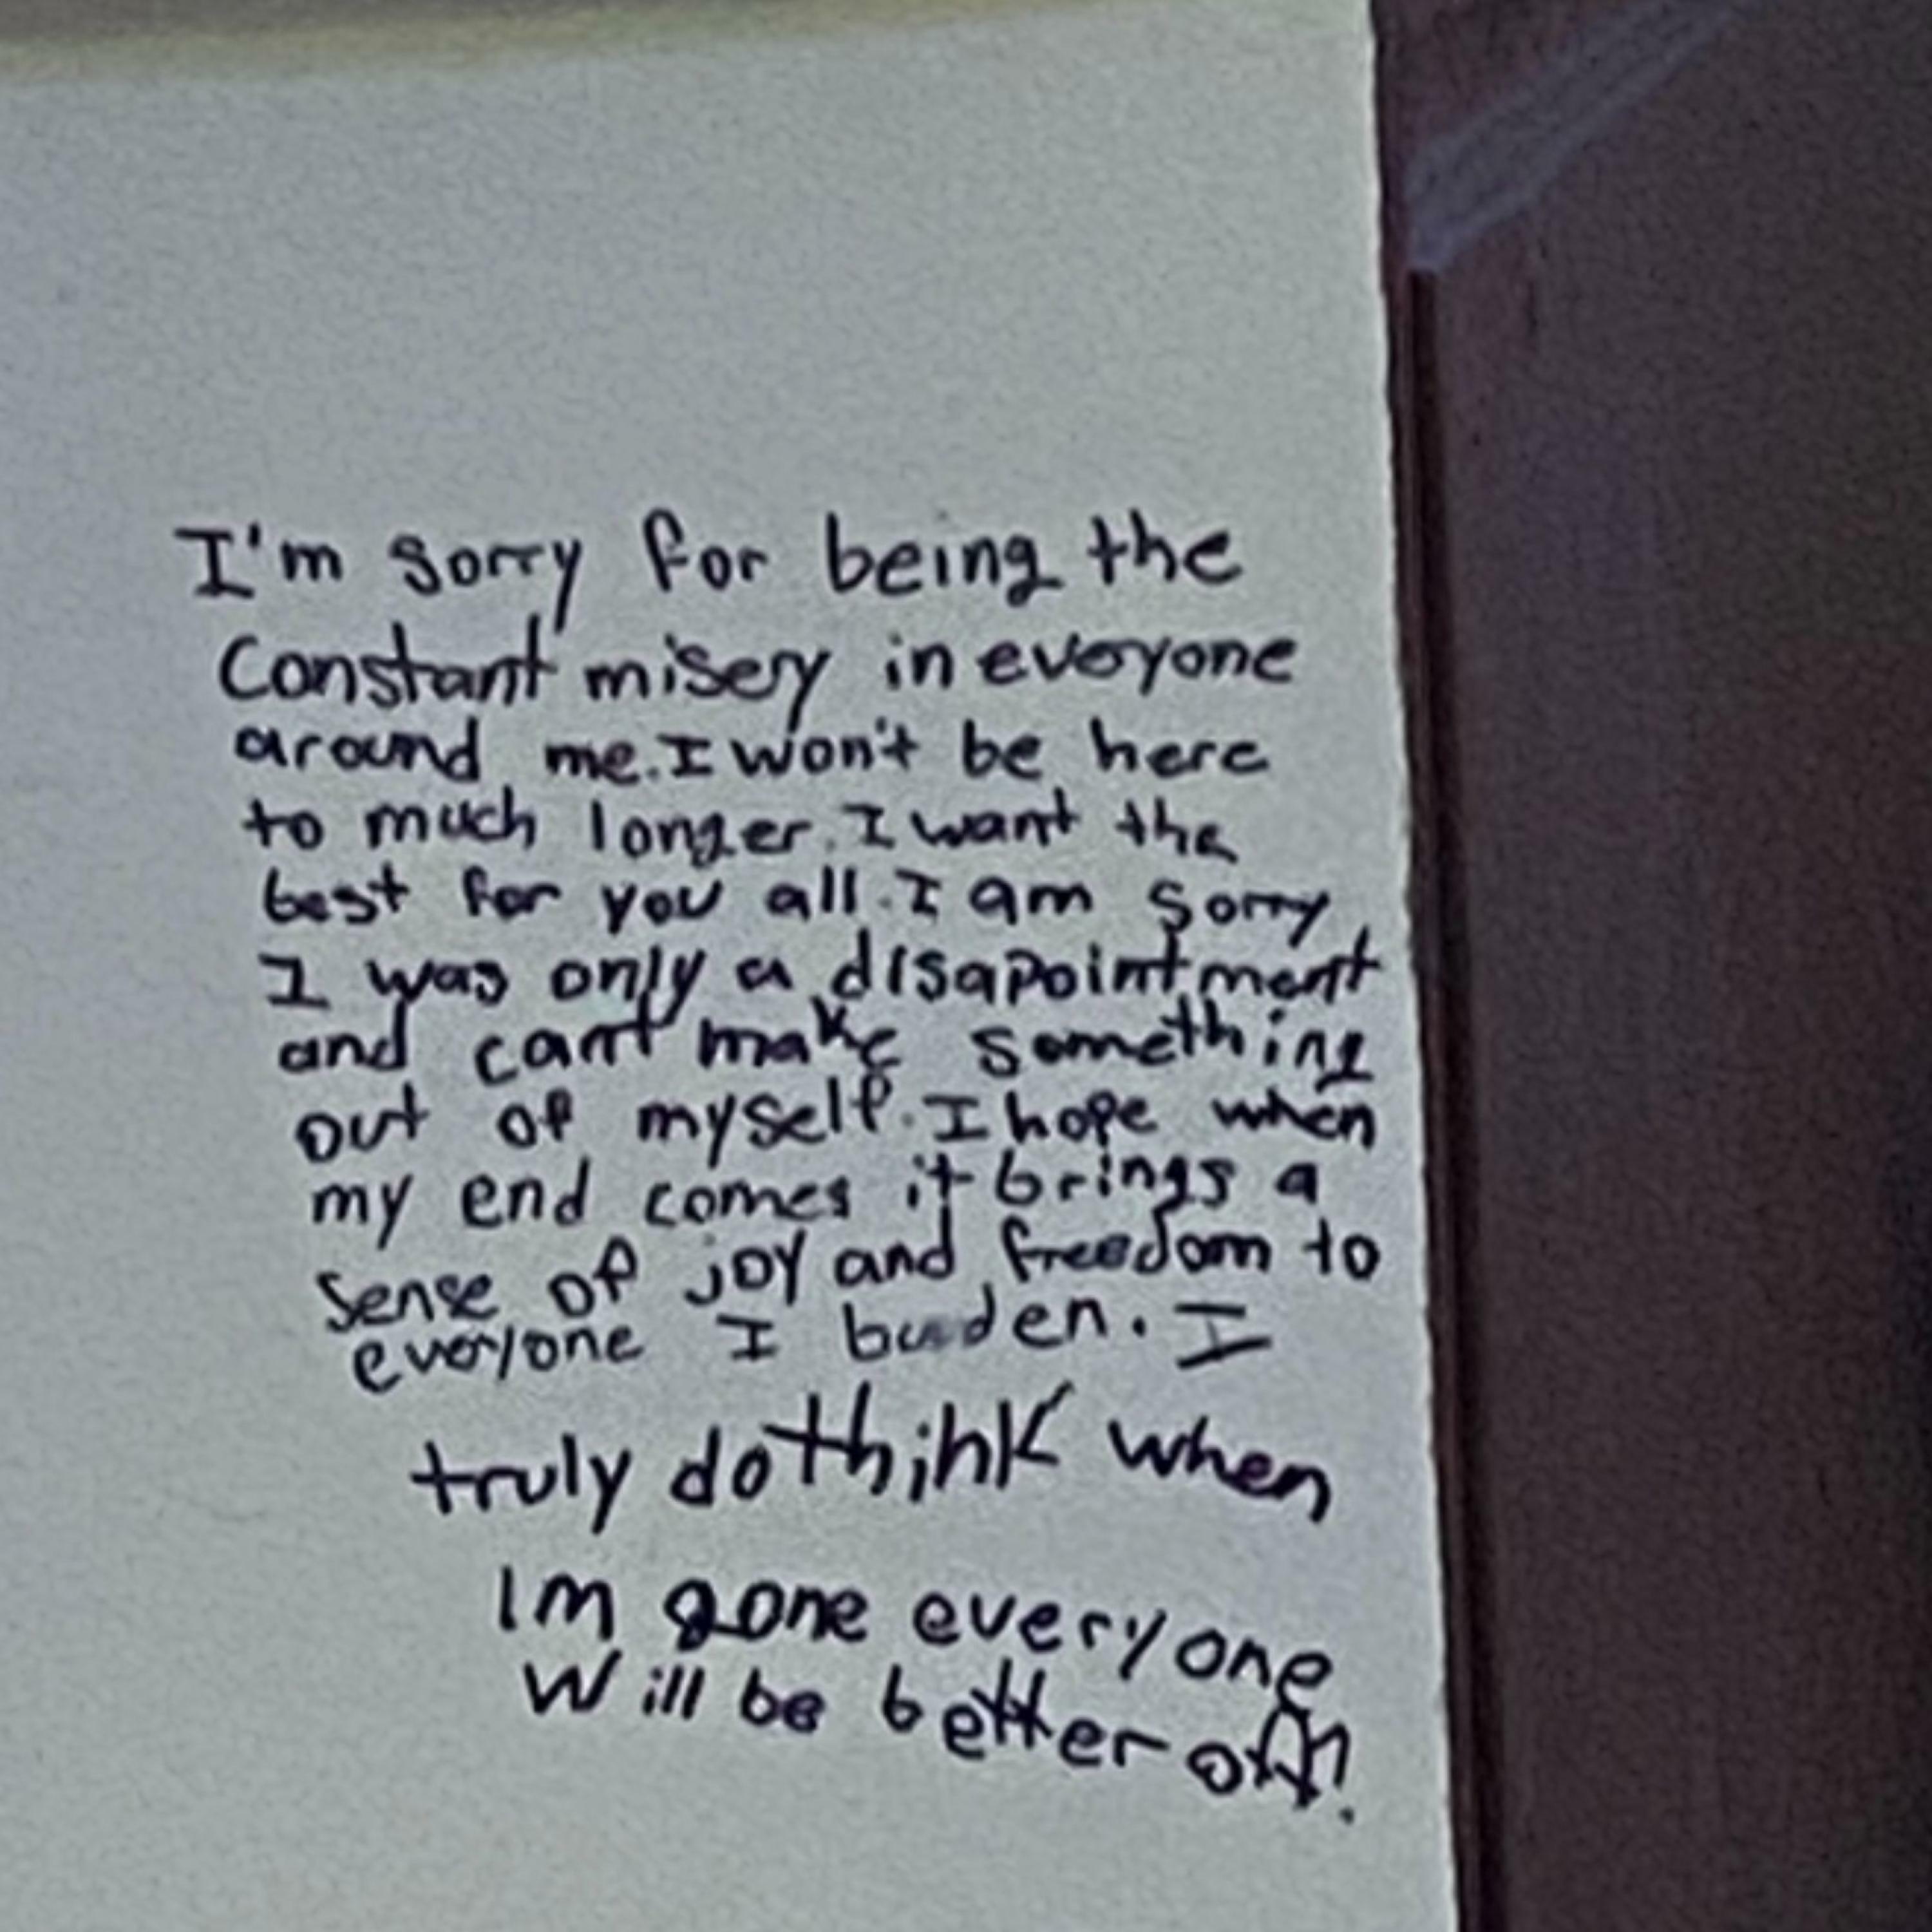 I'm sorry for being the
Constant misery in everyone
around me. I won't be here
to much longer. I want the
best for you all. I am sorry
I was only a disapointment
and can't make something
out of myself. I hope when
my end comes it brings a
sense of joy and freedom to
everyone I burden. I
truly do think when
Im gone everyone
will be better off!